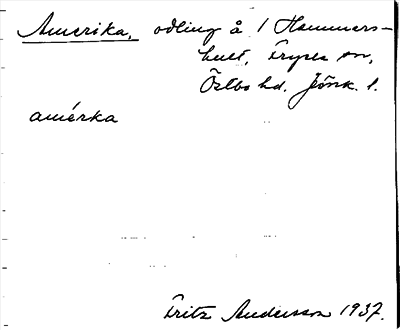 Amerika, odling å 1 Hammars-
hult, Fryele sn,
Östbo hd. Jönk. l.
amérka
Fritz Andersson 1937.